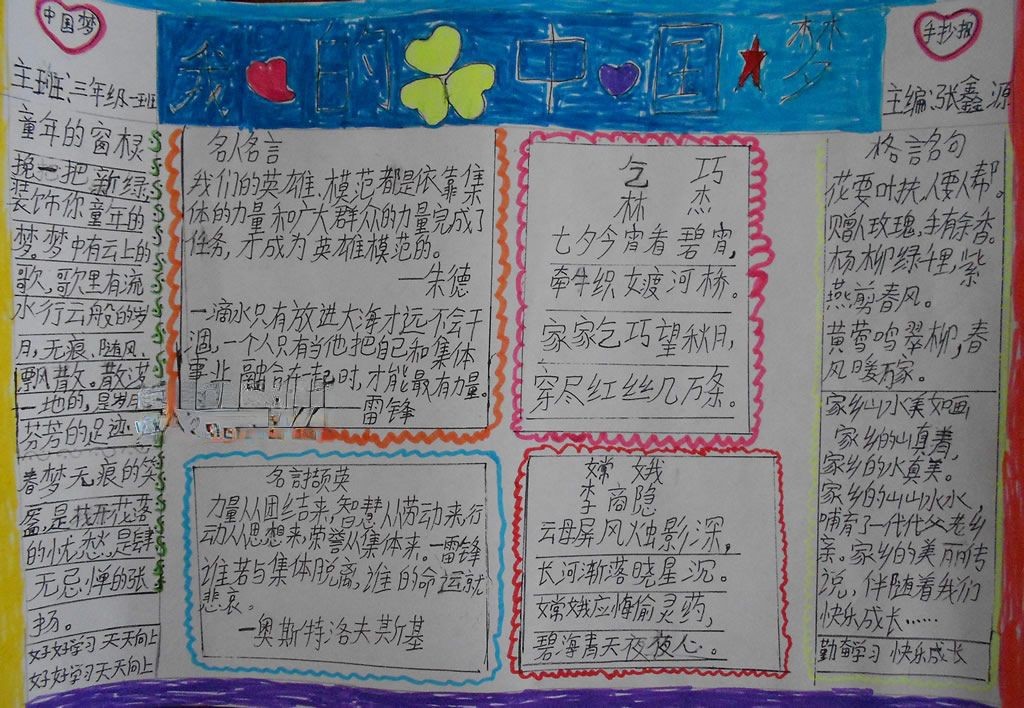 中国梦
我的中国梦
手抄报
主班:三年级一班
童年的窗棂
挽一把新绿,
装饰你童年的
梦。梦中有云上的
歌,歌里有流
水行云般的岁
月,无痕、随风、
飘散。散落
一地的,是岁月
芬芳的足迹
春梦无痕的笑
靥,是找不花落
的忧愁,是肆
无忌惮的张
扬。
好好学习天天向上
好好学习天天向上
名人名言
我们的英雄、模范都是依靠集
体的力量和广大群众的力量完成了
任务,才成为英雄模范的。
一朱德
一滴水只有放进大海才远不会干
涸,一个人只有当他把自己和集体
事业融合在一起时,才能最有力量。
雷锋
名言颉英
力量从团结来,智慧从劳动来,行
动从思想来,荣誉从集体来。一雷锋
谁若与集体脱离,谁的命运就
悲哀。
一奥斯特洛夫斯基
乞巧
林杰
七夕今宵看碧宵,
牵牛织女渡河桥。
家家乞巧望秋月,
穿尽红丝几万条。
嫦娥
李商隐
云母屏风烛影深,
长河渐落晓星沉。
嫦娥应悔偷灵药,
碧海青天夜夜心。
主编:张鑫源
格言名句
花要叶扶,人要人帮。
赠人玫瑰,手有余香。
杨柳绿千里,紫
燕剪春风。
黄莺鸣翠柳,春
风暖万家。
家乡山水美如画
家乡的山真青,
家乡的水真美。
家乡的山山水水,
哺育了一代代父老乡
亲。家乡的美丽传
说,伴随着我们
快乐成长……
勤奋学习 快乐成长